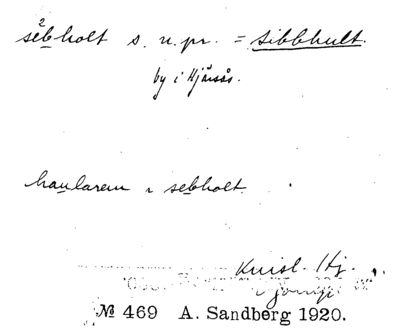 ²sebholt s. n. pr. = Sibbhult.
by i Hjärsås.
i sebholt.
Krisl. Hj.
№ 469 A. Sandberg 1920.